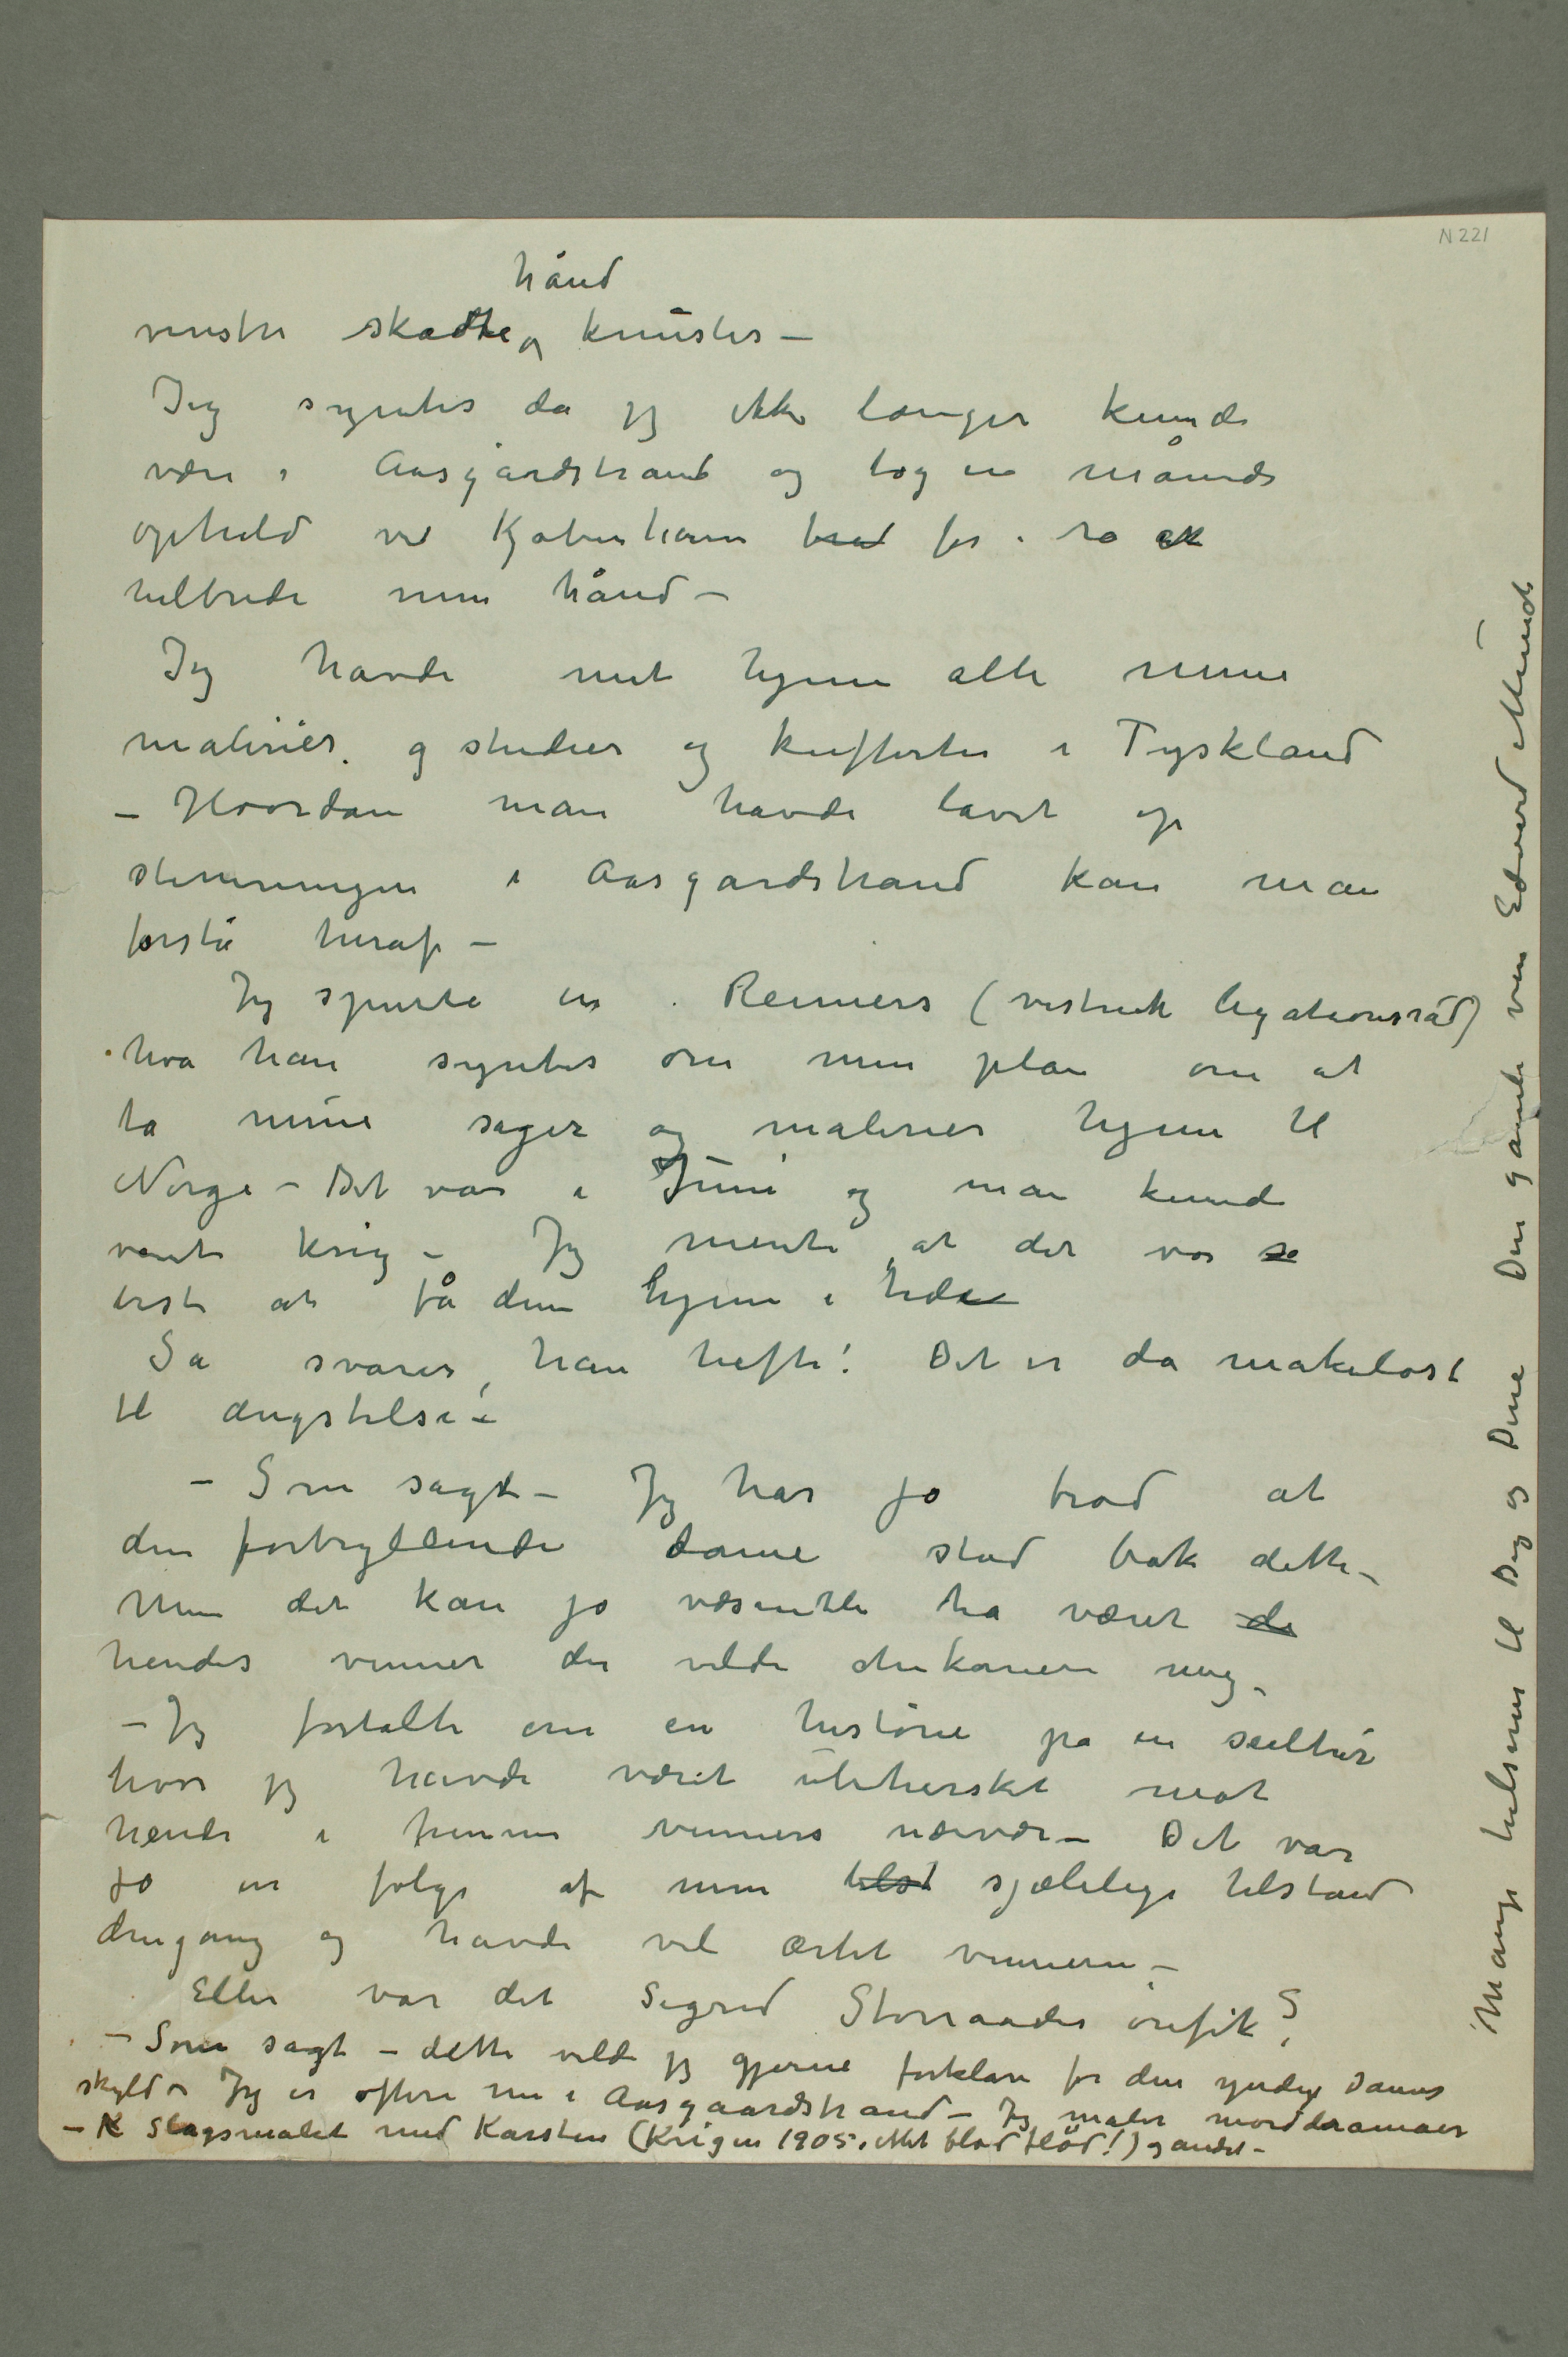 N 221
hånd
venstre skadte og knustes –
Jeg syntes da jeg ikke længer kunde
være i Aasgårdstrand og tog en måneds
ophold ved Kjøbenhavn for i ro at
helbrede min hånd –
Jeg havde mit hjem alle mine
malerier og studier og kufferter i Tyskland
– Hvordan man havde lavet op
stemningen i Aasgardstrand kan man
forstå heraf –
Jeg spurte en Reimers (vistnok legationsråd)
hva han syntes om min plan om at
ta mine sager og malerier hjem til
Norge – Det var i Juni og man kunde
vente krig – Jeg mente at det var se
best at få dem hjem i tide
Så svarer han heftig: Det er da makeløst
til ængstelse! –
– Som sagt – Jeg har jo trod at
den fortryllende dame stod bak dette –
Men det kan jo væsentlig ha været de
hendes venner der vilde chikanere mig –
– Jeg fortalte om en historie på en seiltur
hvor jeg havde været ubehersket mot
hende i hennes venners nærvær – Det var
jo en følge af min tilst sjælelige tilstand
dengang og havde vel ærtet vennerne –
Eller var det Sigrid Storraades ørefik?
– Som sagt – dette vilde jeg gjerne forklare for den yndige Dames
skyld – Jeg er oftere nu i Aasgaardstrand – Jeg maler morddramaer
– K Slagsmålet med Karsten (Krigen 1905. Mit blod flød!) og andet –
Mange hilsener til Dig og Dine Din gamle ven Edvard Munch